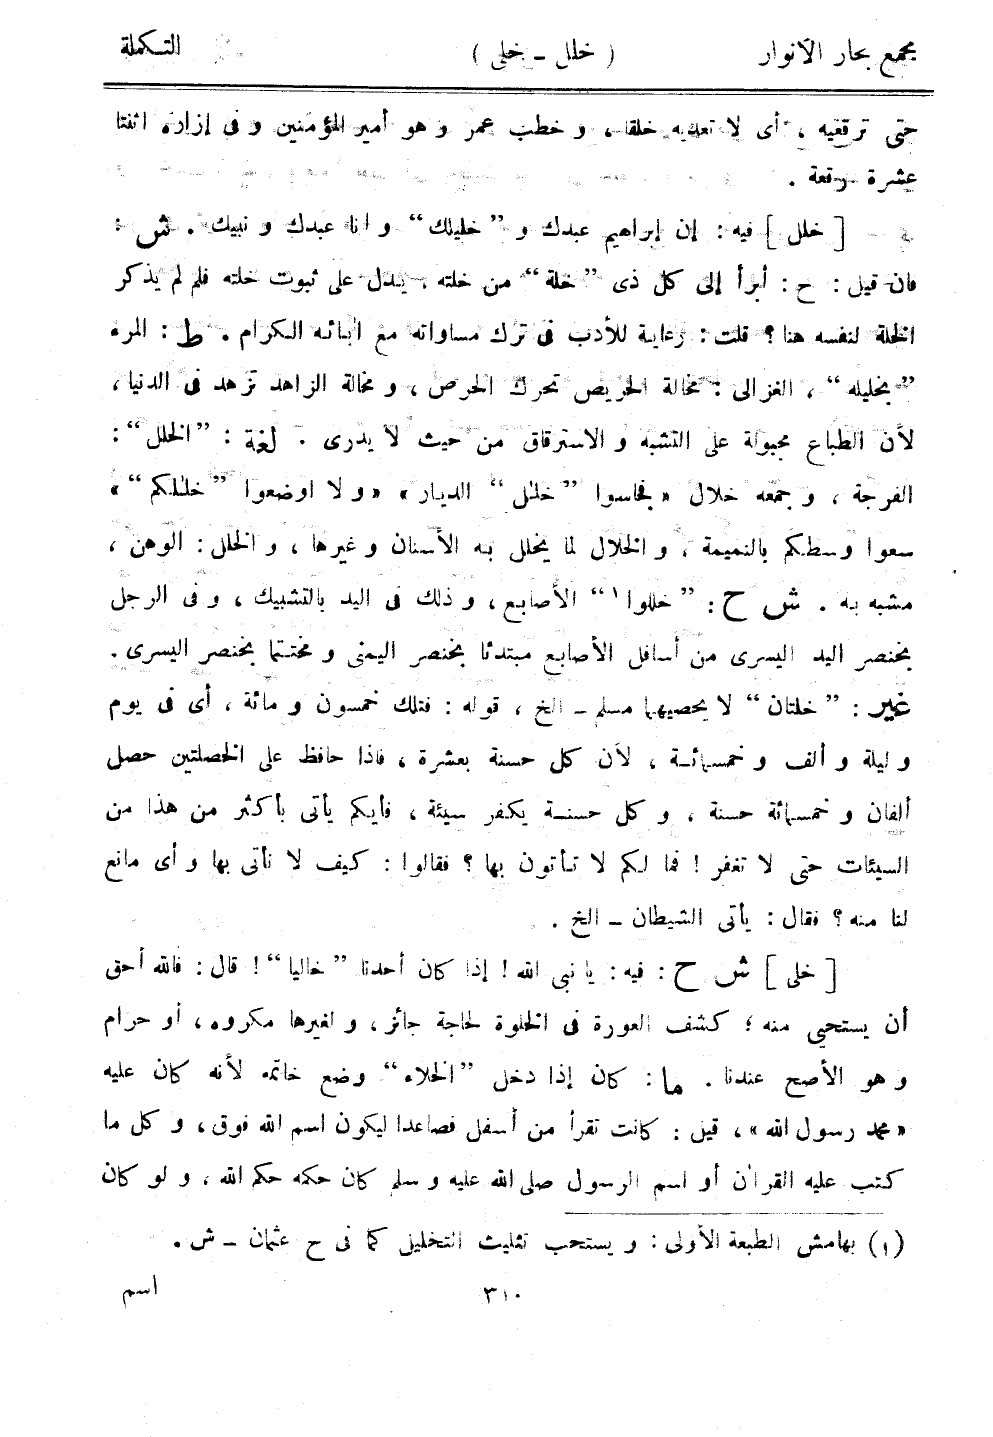 مجمع بحار الأنوار ( خلل ـ خلى ) التكملة
حتى ترقعيه ، أى لا تعديه خلقا ، و خطب عمر و هو أمير المؤمنين و فى إزاره اثنتا
عشرة رقعة .
[ خلل ] فيه : إن إبراهيم عبدك و ”خليلك“ و انا عبدك و نبيك . ش :
فان قيل : ح : أبرأ إلى كل ذى ”خلة“ من خلته ، يدل على ثبوت خلته فلم لم يذكر
الخلة لنفسه هنا ؟ قلت : رعاية للأدب فى ترك مساواته مع ابائه الكرام . ط : المرء
”بخليله“ ، الغزالى : مخالة الحريص تحرك الحرص ، و مخالة الزاهد تزهد فى الدنيا ،
لأن الطباع مجبولة على التشبه و الاسترقاق من حيث لا يدرى . لغة : ”الخلل“ :
الفرجة ، و جمعه خلال « فجاسوا ”خلٰل“ الديار » « و لا اوضعوا ”خلٰلكم“ »
سعوا وسطكم بالنميمة ، و الخلال لما يخلل به الأسنان و غيرها ، و الخلل : الوهن ،
مشبه به . ش ح : ”خللوا١“ الأصابع ، و ذلك فى اليد بالتشبيك ، و فى الرجل
بخنصر اليد اليسرى من أسافل الأصابع مبتدئا بخنصر اليمنى و مختتما بخنصر اليسرى .
غير : ”خلتان“ لا يحصيهما مسلم ـ الخ ، قوله : فتلك خمسون و مائة ، أى فى يوم
و ليلة و ألف و خمسمائة ، لأن كل حسنة بعشرة ، فاذا حافظ على الخصلتين حصل
ألفان و خمسمائة حسنة ، و كل حسنة يكفر سيئة ، فأيكم يأتى بأكثر من هذا من
السيئات حتى لا تغفر ! فما لكم لا تأتون بها ؟ فقالوا : كيف لا نأتى بها و أى مانع
لنا منه ؟ فقال : يأتى الشيطان ـ الخ .
[ خلى ] ش ح : فيه : يا نبى الله ! إذا كان أحدنا ”خاليا“ ! قال : فالله أحق
أن يستحيى منه ؛ كشف العورة فى الخلوة لحاجة جائز ، و لغيرها مكروه ، أو حرام
و هو الأصح عندنا . ما : كان إذا دخل ”الخلاء“ وضع خاتمه لأنه كان عليه
« محمد رسول الله » ، قيل : كانت تقرأ من أسفل فصاعدا ليكون اسم الله فوق ، و كل ما
كتب عليه القرآن أو اسم الرسول صلى الله عليه و سلم كان حكمه حكم الله ، و لو كان
(١) بهامش الطبعة الأولى : و يستحب تثليث التخليل كما فى ح عثمان ـ ش .
٣١٠ اسم